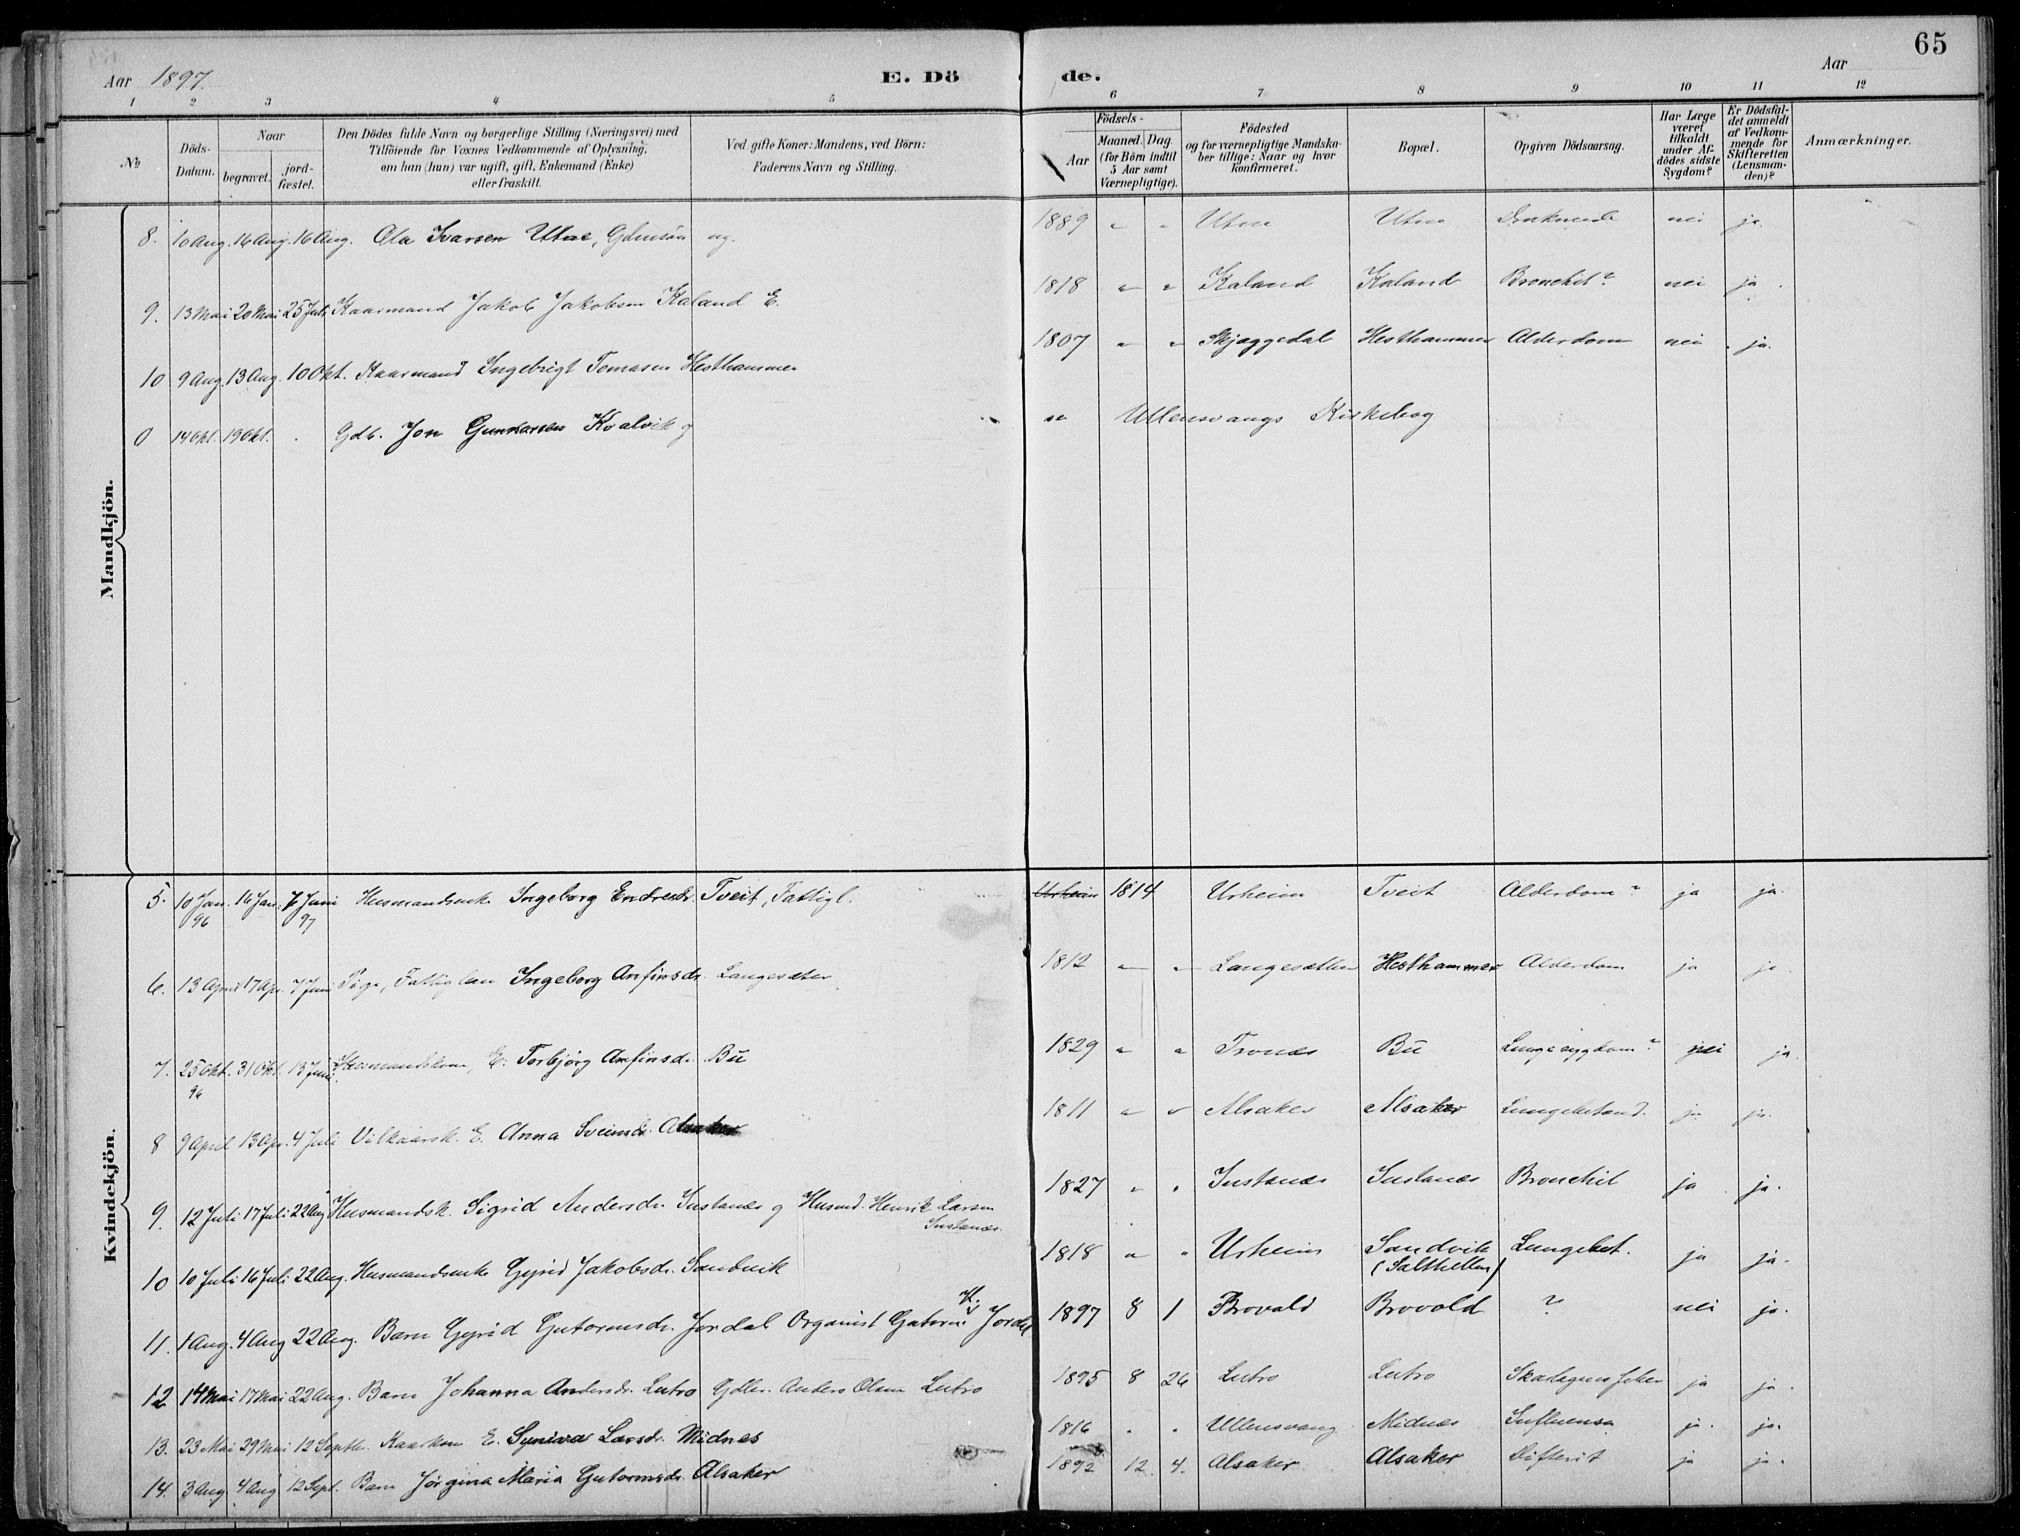 65
Aar 1897. E. Dö de. Aar
1 2 3 4 5 6 7 8 9 10 11 12
No
Döds-Datum.
Naar
begravet.
jord-fæstet.
Den Dödes fulde Navn og borgerlige Stilling (Næringsvei) med
Tilföiende for Voxnes Vedkommende af Oplysning,
om han (hun) var ugift, gift, Enkemand (Enke)
eller fraskilt.
Ved gifte Koner: Mandens, ved Börn:
Faderens Navn og Stilling.
Födsels-
Aar
Maaned. Dag.
(for Börn indtil
5 Aar samt
Værnepligtige).
Födested
og for værnepligtige Mandska-
ber tillige: Naar og hvor
konfirmeret.
Bopæl.
Opgiven Dödsaarsag.
Har Læge
været
tilkaldt
under Af-
dödes sidste
Sygdom?
Er Dödsfal-
det anmeldt
af Vedkom-
mende for
Skifteretten
(Lensman-
den)?
Anmærkninger.
Mandkjön.
8. 10 Aug. 16 Aug. 16 Aug. Ola Ivarsen Utne, ug. 1889 " " Utne Utne Druknede nei ja.
9. 13 Mai 20 Mai 25 Juli Kaarmand Jakob Jakobsen Kaland E. 1818 " " Kaland Kaland Bronchit? nei ja.
10 9 Aug. 13 Aug. 10 Okt. Kaarmand Ingebrigt Tomasen Hesthammer 1807 " " Skjæggedal Hesthammer Alderdom nei ja.
0 14 Okt. 19 Okt. Gdb. Jon Gunnarsen Kvalvik g se Ullensvangs Kirkebog
Kvindekjön.
5. 10 Jan. 96 16 Jan. 7 Juni 97 Husmandsenke Ingeborg Endresdr. Tveit, Fattigl. Urheim 1814 Urheim Tveit Alderdom? ja ja.
6. 13 April 17 Apr. 7 Juni Pige, Fattiglem Ingeborg Anfinsdr. Langesæter 1812 " " Langesæther Hesthammer Alderdom ja ja.
7. 25 Okt. 96 31 Okt. 13 Juni Husmandskone, E. Torbjörg Anfinsdr. Bu 1829 " " Tronæs Bu Lungesygdom? nei ja.
8 9 April 13 Apr. 4 Juli Vilkaarsk. E. Anna Sveinsdr. Alsaker 1811 " " Alsaker Alsaker Lungebetænd. ja ja.
9. 12 Juli 17 Juli 22 Aug Husmandsk. Sigrid Andersdr. Instanæs g Husmd. Henrik Larsen Instanæs. 1827 " " Instanæs Instanæs Bronchit ja ja.
10 10 Juli 16 Juli 22 Aug. Husmandsenke Gyrid Jakobsdr. Sandvik 1818 " " Urheim Sandvik (Salthellen) Lungebet. ja ja.
11. 1 Aug. 4 Aug 22 Aug. Barn Gyrid Gutormsdr. Jordal Organist Gutorm H. Jordal 1897 8 1 Brovold Brovold ? nei ja.
12 14 Mai 17 Mai 22 Aug. Barn Johanna Andersdr. Lutro Gdbr. Anders Olsen Lutro 1895 8 26 Lutro Lutro Skarlagensfeber ja ja.
13. 23 Mai 29 Mai 12 Septbr. Kaarkone E. Syniva Larsdr. Midnes 1816 " " Ullensvang Midnæs Influensa ja. ja.
14. 3 Aug 4 Aug 12 Sept. Barn Jörgina Maria Gutormsdr. Alsaker 1892 12 4. Alsaker Alsaker Difterit ja ja.